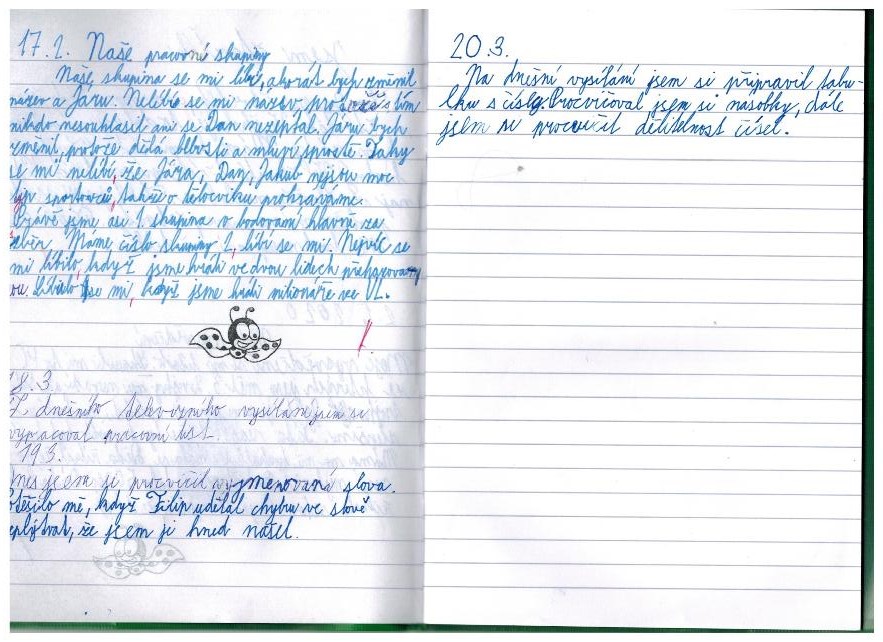 17. 2. Naše pracovní skupiny
Naše skupina se mi líbí, akorát bych změnil
název a Járu. Nelíbí se mi název, protože s tím
nikdo nesouhlasil ani se Dan nezeptal. Járu bych
změnil, protože dělá blbosti a mluví sprostě. Taky
se mi nelíbí, že Jára, Dan, Jakub nejsou moc
typ sportovců, takže v tělocviku prohráváme.
Právě jsme asi 1 skupina v bodování hlavně za
sběr. Máme číslo skupiny 1, líbí se mi. Nejvíc se
mi líbilo, když jsme hráli ve dvou lidech přehazovan
ou. Líbilo se mi, když jsme hráli milionáře ve VL.
18. 3.
Z dnešního televizního vysílání jsem si
vypracoval pracovní list.
19 3.
Dnes jsem si procvičil vyjmenovaná slova.
Potěšilo mě, když Filip udělal chybu ve slově
eplýtvat, že jsem ji hned našel.
20. 3.
Na dnešní vysílání jsem si připravil tabu-
lku s čísly. Procvičoval jsem si násobky, dále
jsem si procvičil dělitelnost čísel.